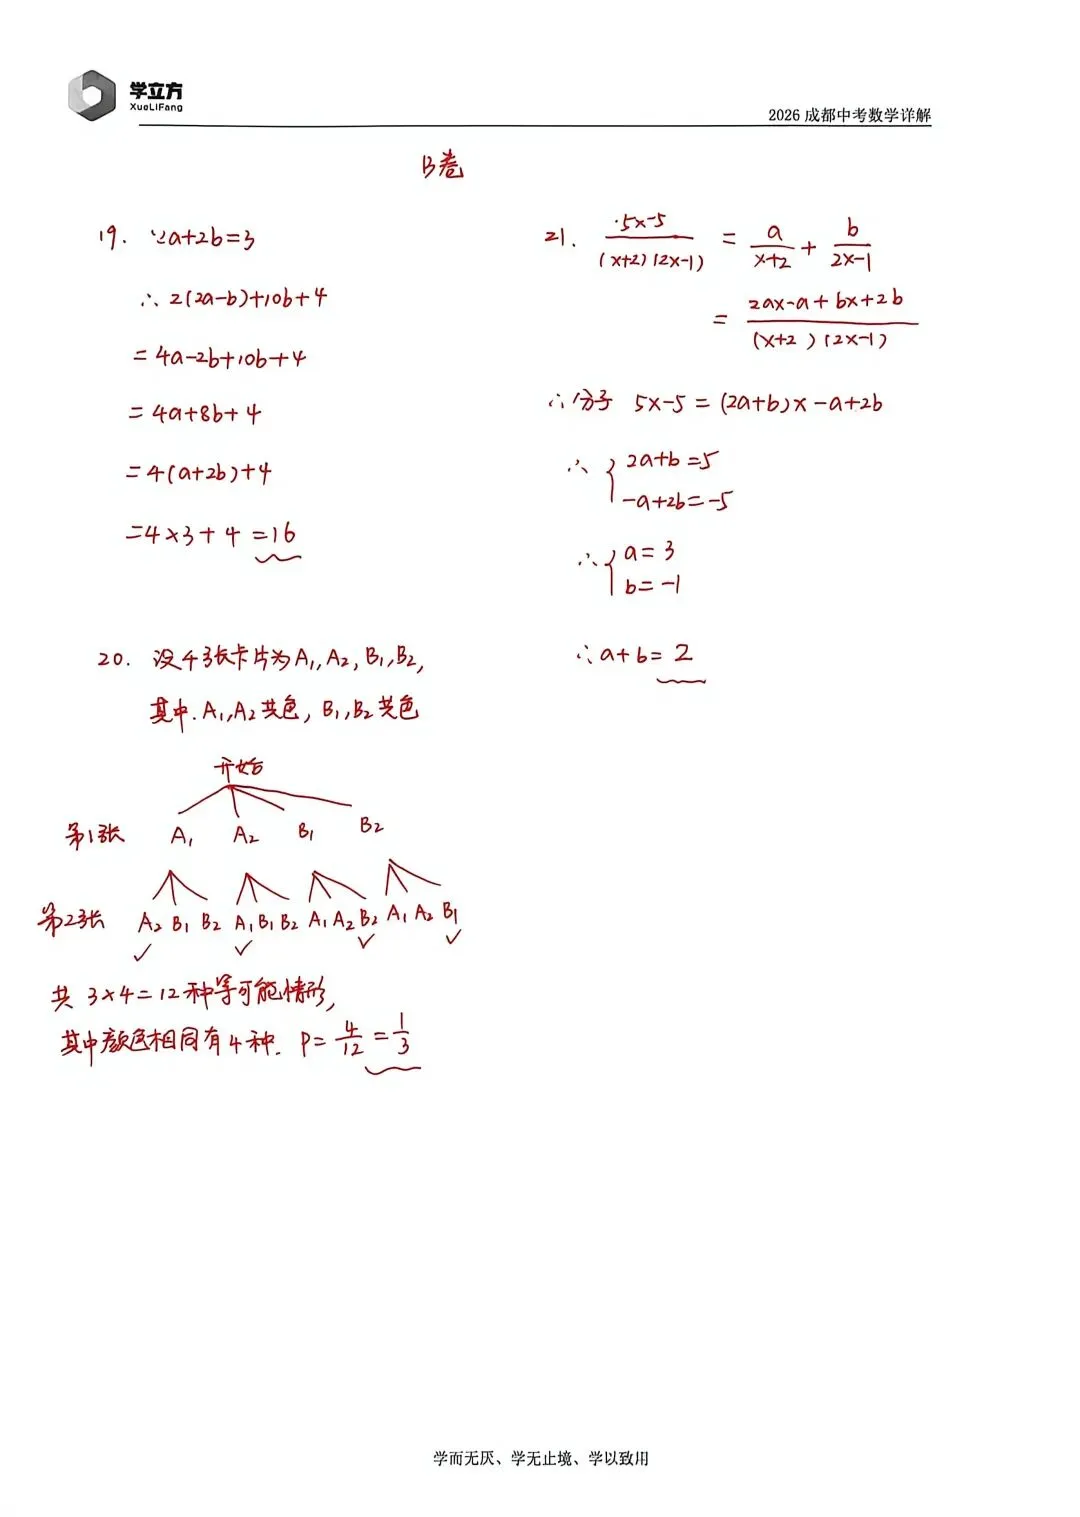 学立方
XueLiFang
2026 成都中考数学详解
B卷
19. ∵a+2b=3
∴ 2(2a-b)+10b+4
= 4a-2b+10b+4
= 4a+8b+4
= 4(a+2b)+4
=4×3+4 =16
20. 设4张卡片为A₁,A₂,B₁,B₂,
其中.A₁,A₂共色, B₁,B₂共色
开始
第1张 A₁ A₂ B₁ B₂
第2张 A₂ B₁ B₂ A₁ B₁ B₂ A₁ A₂ B₂ A₁ A₂ B₁
✓ ✓ ✓ ✓
共 3×4=12种等可能情形,
其中颜色相同有4种. P= 4/12 = 1/3
21. (5x-5)/((x+2)(2x-1)) = a/(x+2) + b/(2x-1)
= (2ax-a+bx+2b)/((x+2)(2x-1))
∴分子 5x-5=(2a+b)x-a+2b
∴ { 2a+b=5
-a+2b=-5
∴ { a=3
b=-1
∴a+b=2
学而无厌、学无止境、学以致用